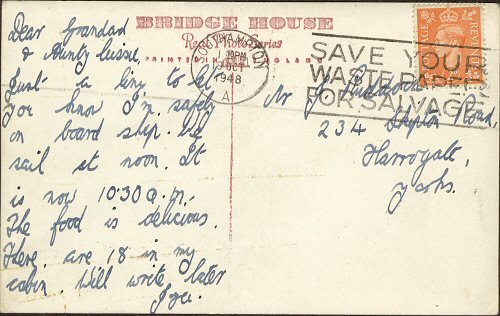 BRIDGE HOUSE
Real Photo Series
PRINTED IN ENGLAND
Dear Grandad
& Aunty
Just a line to let
you know I'm safely
on board ship. We
sail at noon. It
is now 10.30 a.m.
The food is delicious.
There are 18 in my
cabin. Will write later
Joyce.
SOUTHAMPTON
PM
OCT
1948
A
SAVE YOUR
WASTE PAPER
FOR SALVAGE
POSTAGE REVENUE
Mr J.
234 Skipton Road,
Harrogate,
Yorks.